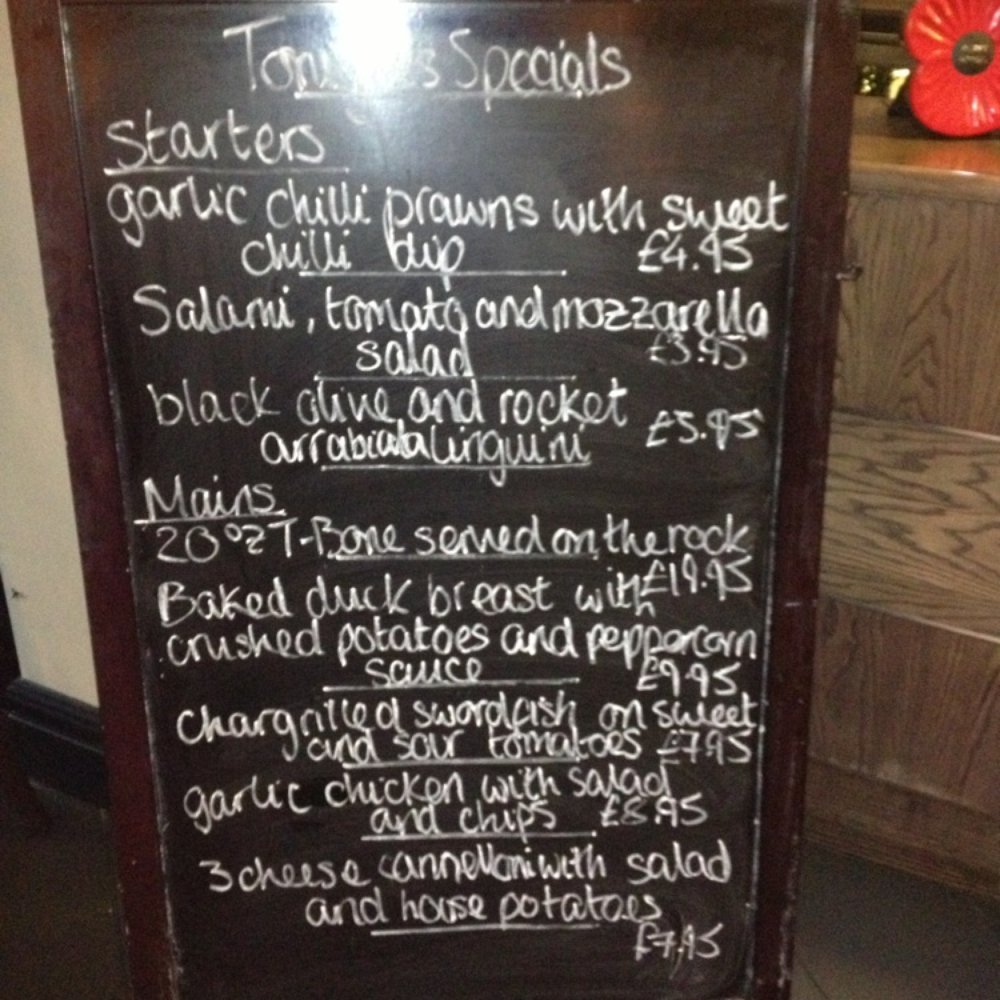 Tonight's Specials
Starters
garlic chilli prawns with sweet
chilli dip £4.95
Salami, tomato and mozzarella
salad £3.95
black olive and rocket
arrabiata linguini £5.95
Mains
20oz T-Bone served on the rock
£19.95
Baked duck breast with
crushed potatoes and peppercorn
sauce £9.95
chargrilled swordfish on sweet
and sour tomatoes £7.95
garlic chicken with salad
and chips £8.95
3 cheese cannelloni with salad
and house potatoes
£7.95